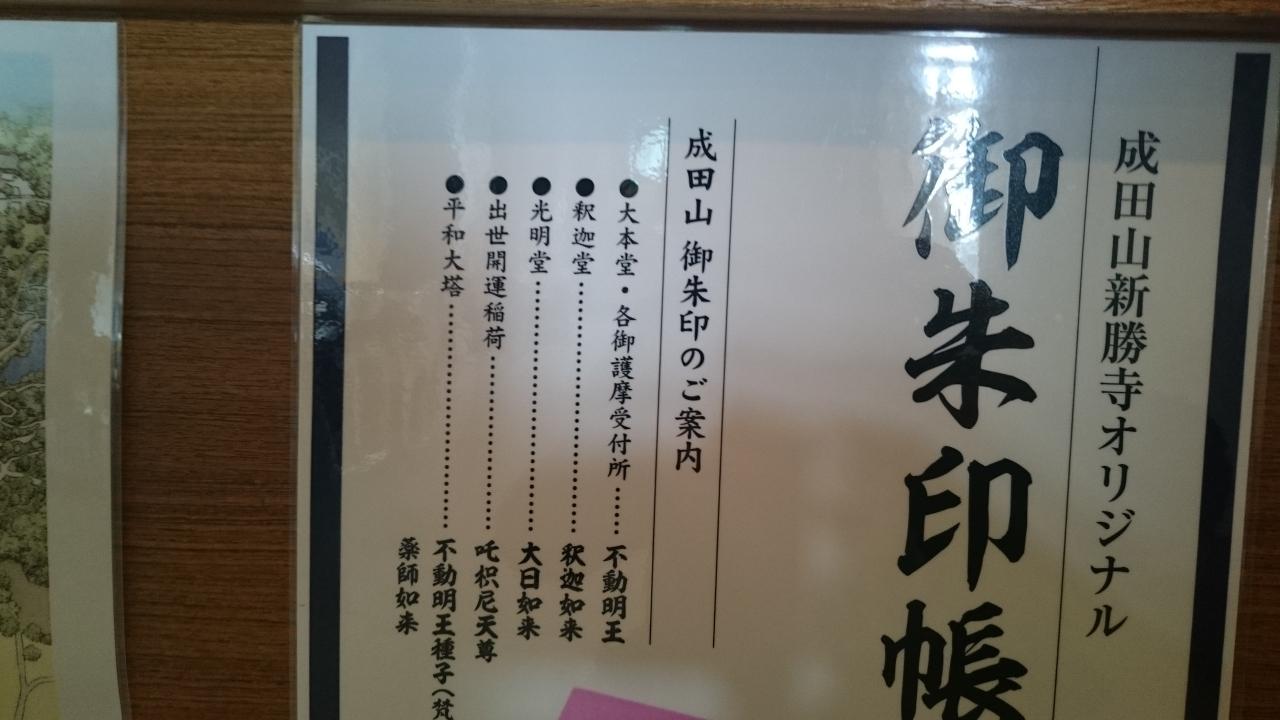 成田山新勝寺オリジナル
御朱印帳
成田山 御朱印のご案内
●大本堂・各御護摩受付所……不動明王
●釈迦堂……………………………釈迦如来
●光明堂……………………………大日如来
●出世開運稲荷……………………吒枳尼天尊
●平和大塔…………………………不動明王種子(梵
薬師如来